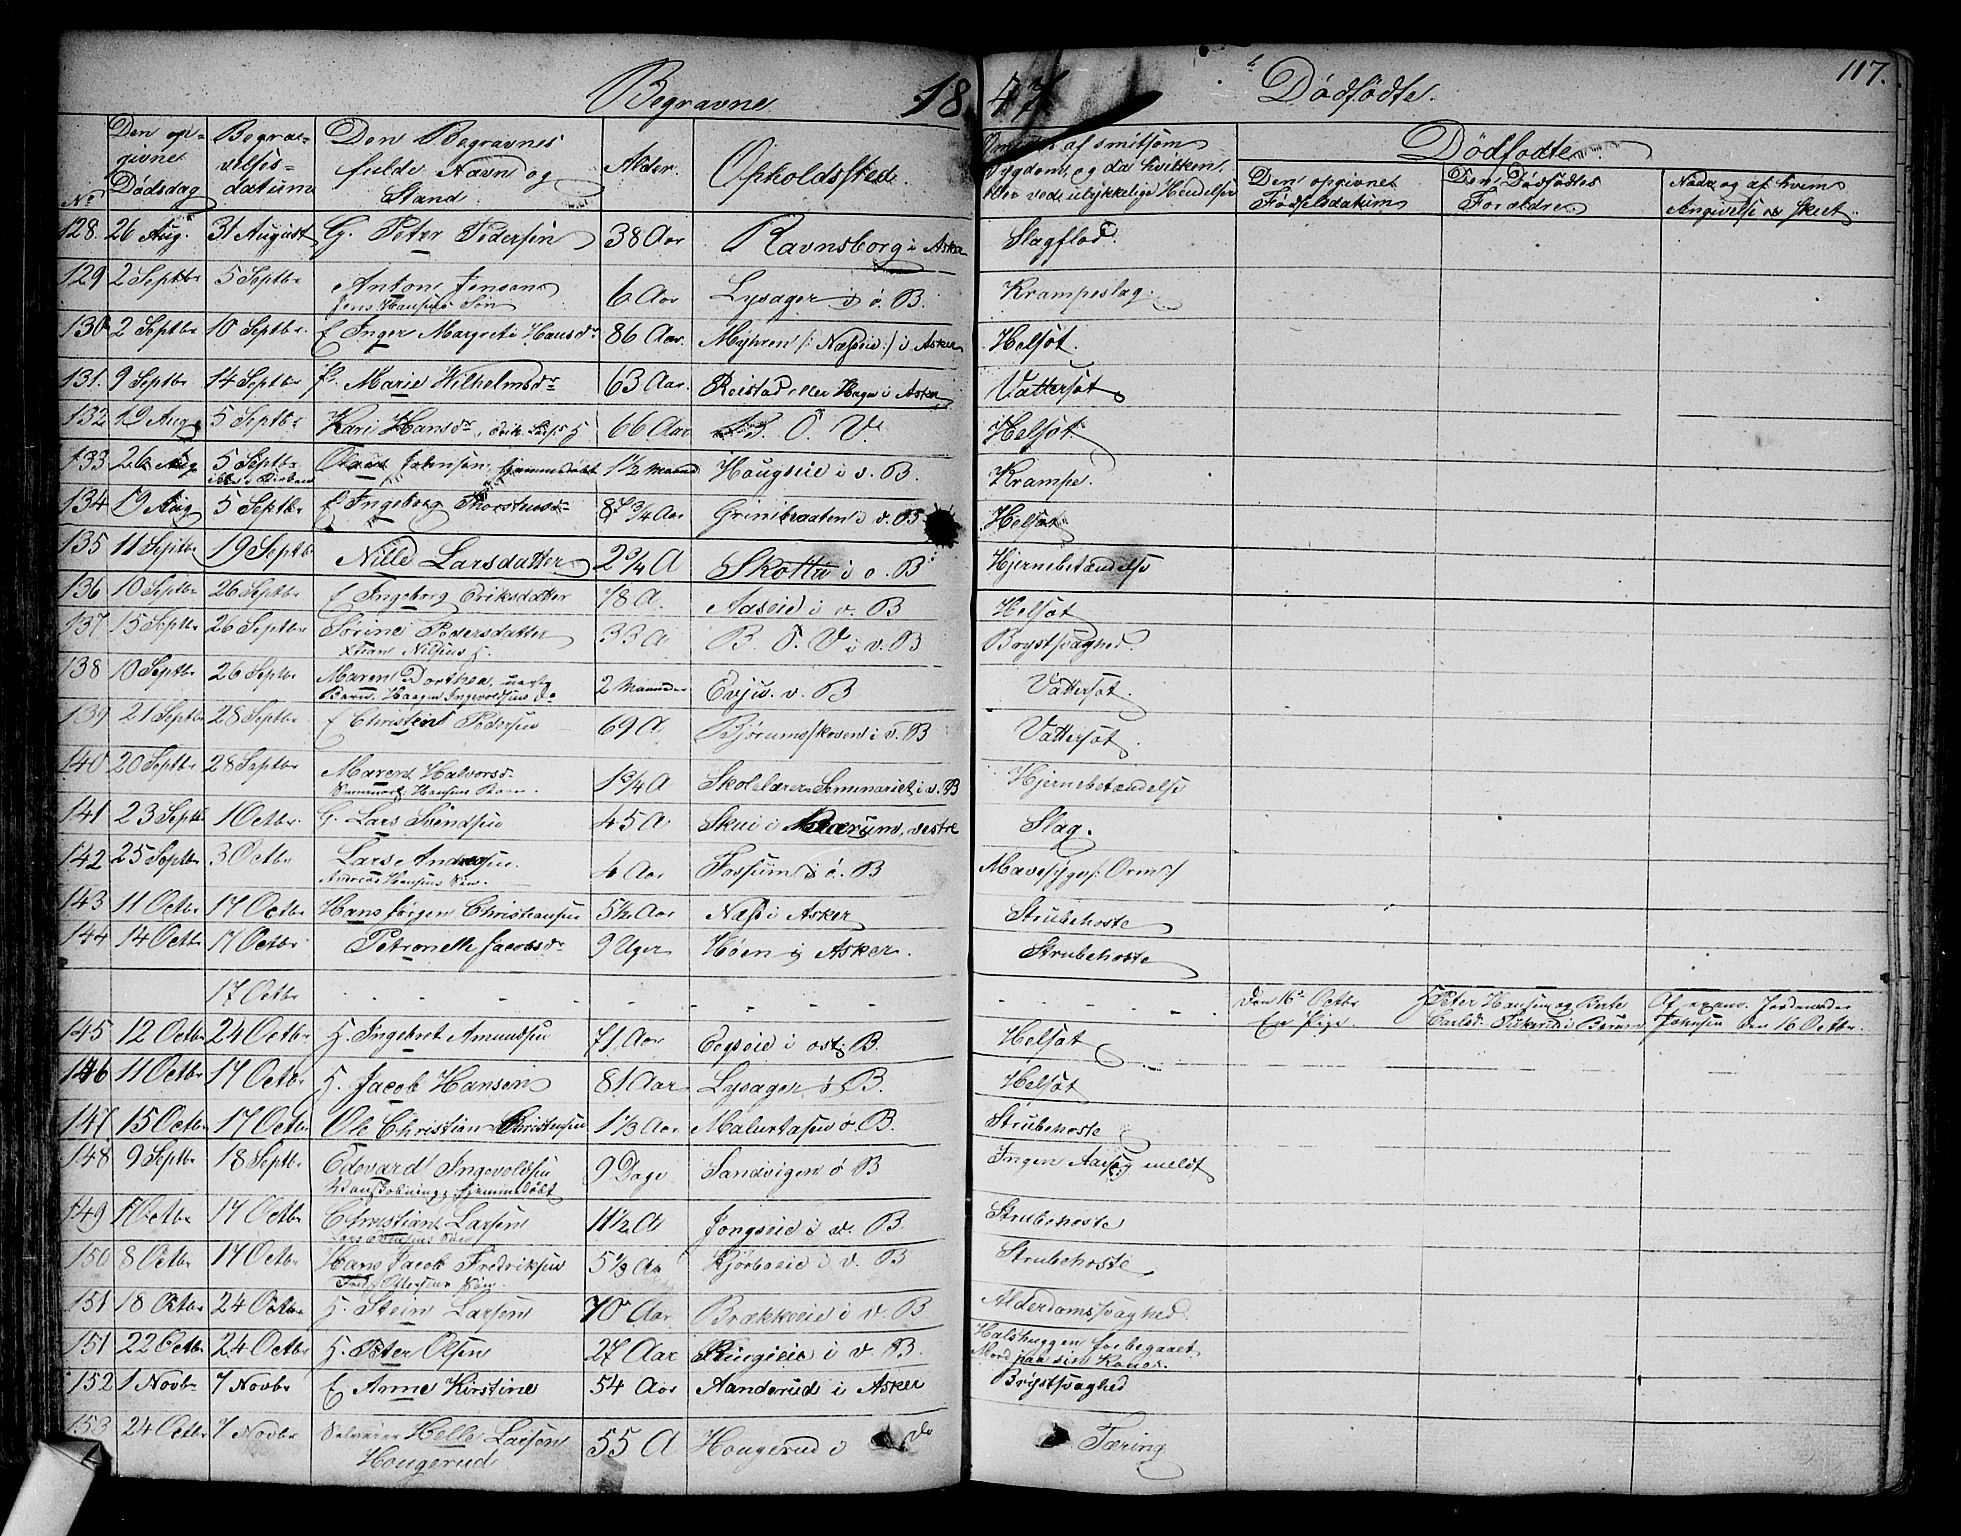 Begravne 1847 Dødfødte. 117.
No Den opgivne Dødsdag Begravelsesdatum Den Begravnes fulde Navn og Stand. Alder. Opholdssted. af smitsom Sygdom, og da hvilken, eller ved ulykkelige Hendelser Dødfødte
Den opgivne Fødselsdatum Den Dødfødtes Forældre Naar og af hvem Angivelse er skeet.
128. 26 Aug. 31 August G. Peter Pedersen 38 Aar Ravnsborg i Asker Slagflod.
129 2 Septbr 5 Septbr Anton Jensen 6 Aar Lysager i ø. B. Krampeslag.
Jens Hansens Søn
130 2 Septbr 10 Septbr. E Inger Margrete Hansdr 86 Aar. Myhren /: Næseie :/ i Asker Helsot.
131. 9 Septbr 14 Septbr Marie Wilhelmsdr 63 Aar. Reistad eller Hagen i Asker Vattersot
132 19 Aug 5 Septbr Kari Hansdr, 66 Aar B. Ø. V. Helsot.
133 26 Aug 5 Septbr Johnsen, hjemmedøbt 1½ Maaned Hougseie i v. B. Krampe.
134 19 Aug 5 Septbr E Ingeborg Thorstensdr 87¾ Aar Grinibraaten i v. B Helsot
135 11 Septbr 19 Septbr Nille Larsdatter 2¾ A Skotta i v. B. Hjernebetændelse
136 10 Septbr 26 Septbr E Ingeborg Eriksdatter 78 A. Aaseie i v. B Helsot
137 15 Septbr 26 Septbr Sørine Pedersdatter 33 A B. Ø. V i v. B Brystsvaghed.
Nilsens H.
138 10 Septbr 26 Septbr Maren Dorthea, uægte 2 Maaneder Evju v. B Vattersot.
Barn Haagen Ingevoldsens
139 21 Septbr 28 Septbr E Christen Pedersen 69 A Bjørumskoven i v. B Vattersot
140 20 Septbr 28 Septbr Maren Halvorsdr 1¾ A Skolelærer Seminariet i v. B Hjernebetændelse
141 23 Septbr 1 Octbr. G. Lars Svendsen 45 A Skui i Bærum, vestre Slag.
142 25 Septbr 3 Octbr Lars Andersen. 4 Aar Fossum i ø. B Mavesyge /: Orm :/
Andreas Hansens Søn.
143 11 Octbr 17 Octbr Hans Jørgen Christensen 5½ Aar Næs i Asker Strubehoste
144 14 Octbr 17 Octbr Petronelle Jacobsdr 9 Uger Høen i Asker. Strubehoste
17 Octbr Den 16de Octbr Peter Hansen og Berte Af exam. Jordemoder
En Pige. i Bærum Johnsen den 16 Octbr.
145 12 Octbr 24 Octbr H. Ingebret Amundsen 71 Aar Eegseie i ost. B. Helsot
146 11 Octbr 17 Octbr H. Jacob Hansen 81 Aar Lysager ø B. Helsot
147 15 Octbr 17 Octbr Ole Christian Christensen 1⅓ Aar Malurtasen ø. B. Strubehoste
148 9 Septbr 18 Septbr Edevard Ingevoldsen 9 Dage Sandvigen ø B Ingen Aarsag meldt
hjemmedøbt
149 1 Octbr 17 Octbr Christian Larsen 11½ A Jongseie i v. B. Strubehoste
150 8 Octbr 17 Octbr Hans Jacob Fredriksen 5⅓ Aar Kjørboeie i v. B Strubehoste
151 18 Octbr 24 Octbr H. Stein Larsen 70 Aar. Brækkeeie i v. B Alderdomssvaghed.
151 22 Octbr 24 Octbr H. Peter Olsen 27 Aar Ringieie i v. B. Halshuggen for begaaet
Mord paa sin Kone.
152 1 Novbr 7 Novbr E Anne Kirstine 54 Aar Aanderud i Asker Brystsvaghed
153 24 Octbr 7 Novbr Selveier Helle Larsen 55 A Hougerud i do Tæring
Hougerud